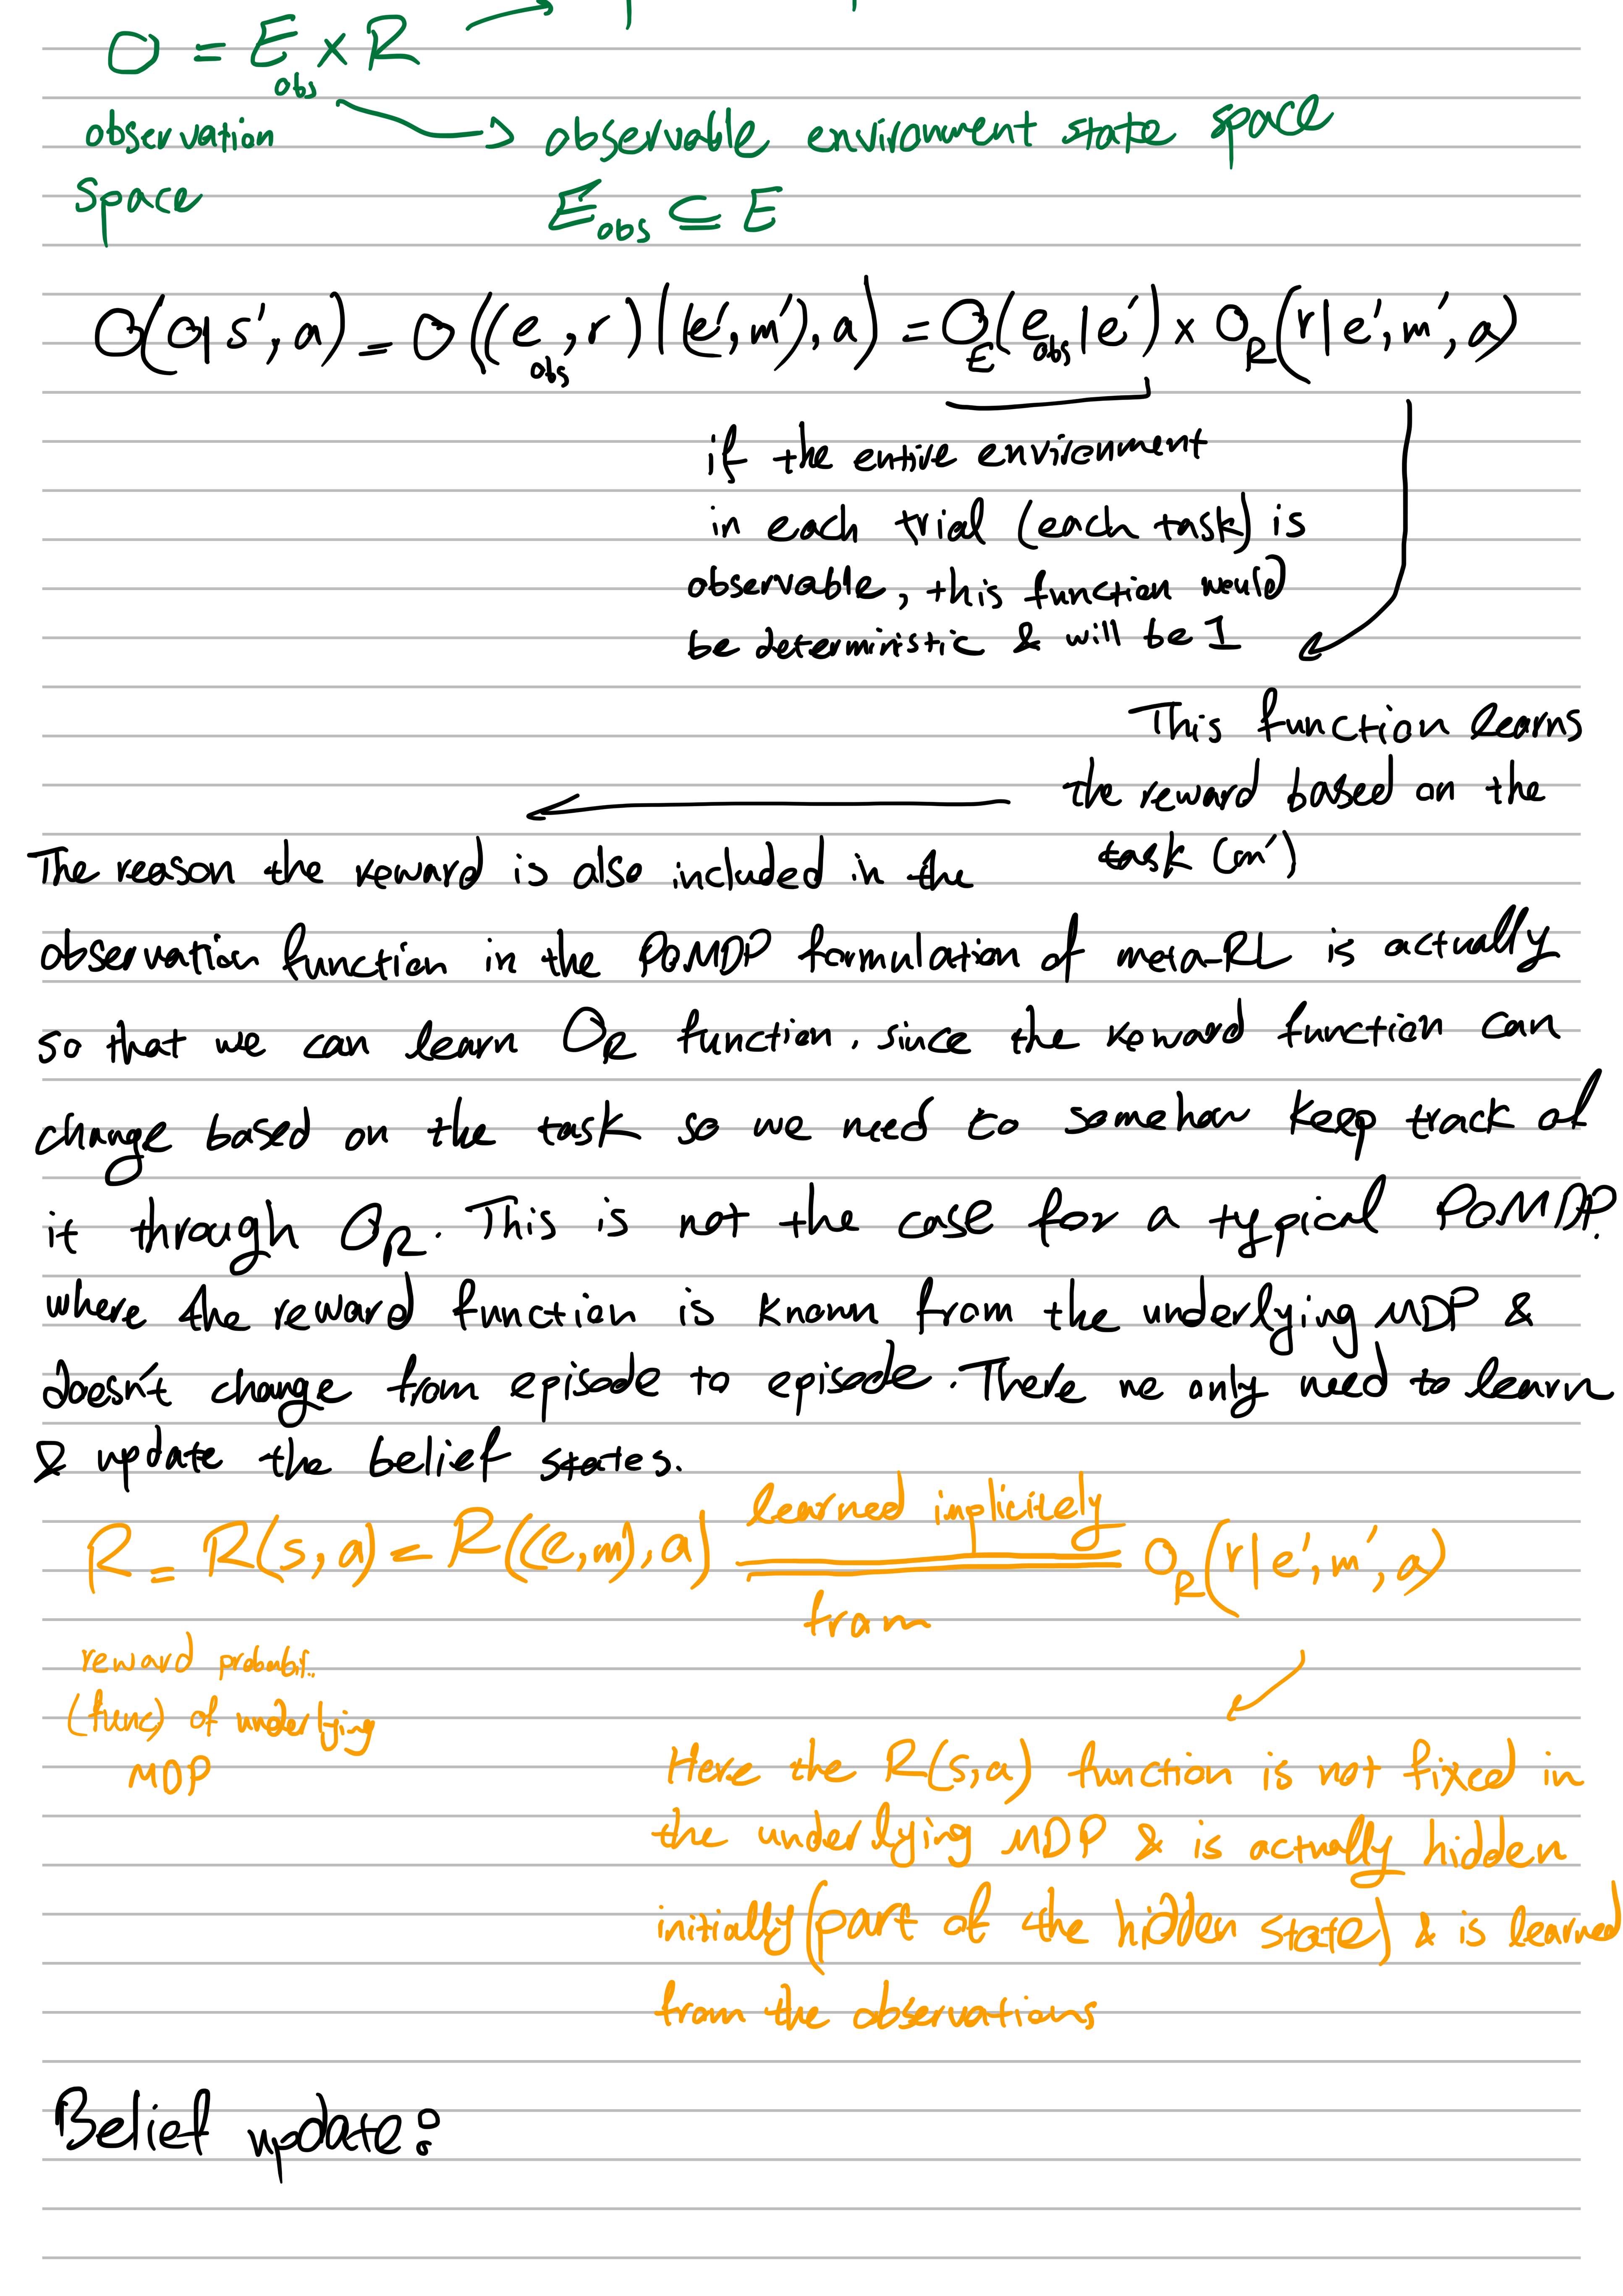 O = E_obs × R →
observation → observable environment state space
space E_obs ⊆ E
O(o|s', a) = O((e_obs, r)|(e', m'), a) = O_E(e_obs|e') × O_R(r|e', m', a)
if the entire environment
in each trial (each task) is
observable, this function would
be deterministic & will be 1
This function learns
the reward based on the
task (m')
The reason the reward is also included in the
observation function in the POMDP formulation of meta-RL is actually
so that we can learn O_R function, since the reward function can
change based on the task so we need to somehow keep track of
it through O_R. This is not the case for a typical POMDP.
where the reward function is known from the underlying MDP &
doesn't change from episode to episode. There we only need to learn
& update the belief states.
learned implicitely
R = R(s, a) = R((e, m), a) = O_R(r|e', m', a)
from
reward probabi.
(func) of underlying
MDP
Here the R(s,a) function is not fixed in
the underlying MDP & is actually hidden
initially (part of the hidden state) & is learned
from the observations
Belief update: